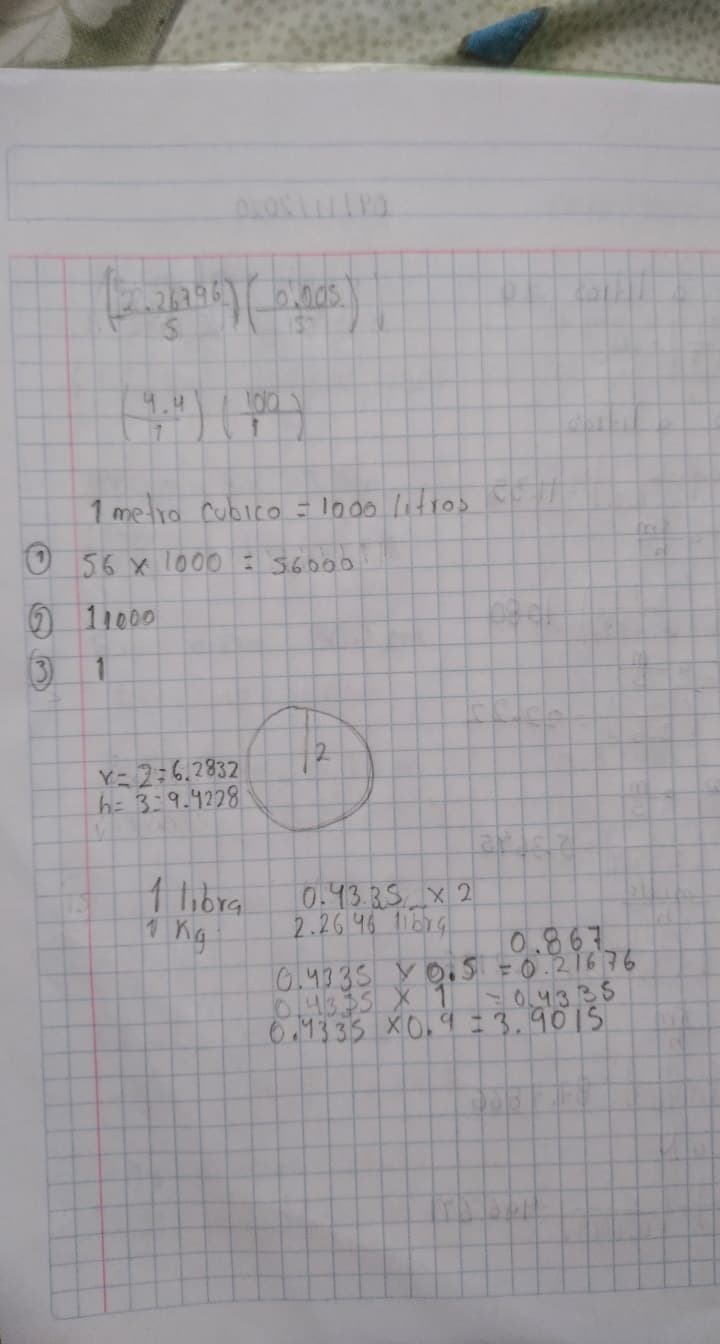 09/11/2020
(2.26796/5)(0.005/5)
(4.4/1)(100/1)
1 metro cubico = 1000 litros
① 56 x 1000 = 56000
② 11000
③ 1
2
r= 2=6.2832
h= 3=9.4228
1 libra 0.4335 x 2
1 Kg 2.2646 libra
0.867
0.4335 x 0.5 = 0.21676
0.4335 x 1 = 0.4335
0.4335 x 0.9 = 3.9015